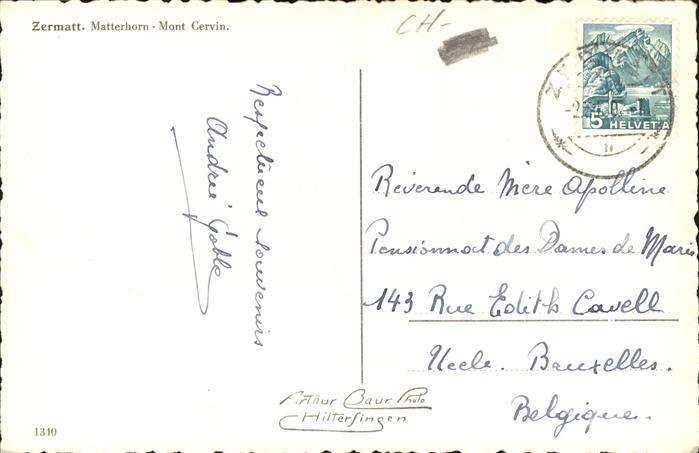 Zermatt. Matterhorn - Mont Cervin.
CH-
5 HELVETIA
Respectueux souvenirs
Andrée
Révérende Mère Apolline
Pensionnat des Dames de Marie
143 Rue Edith Cavell
Uccle. Bruxelles.
Belgique.
Arthur Baur Photo
Hilterfingen
1340